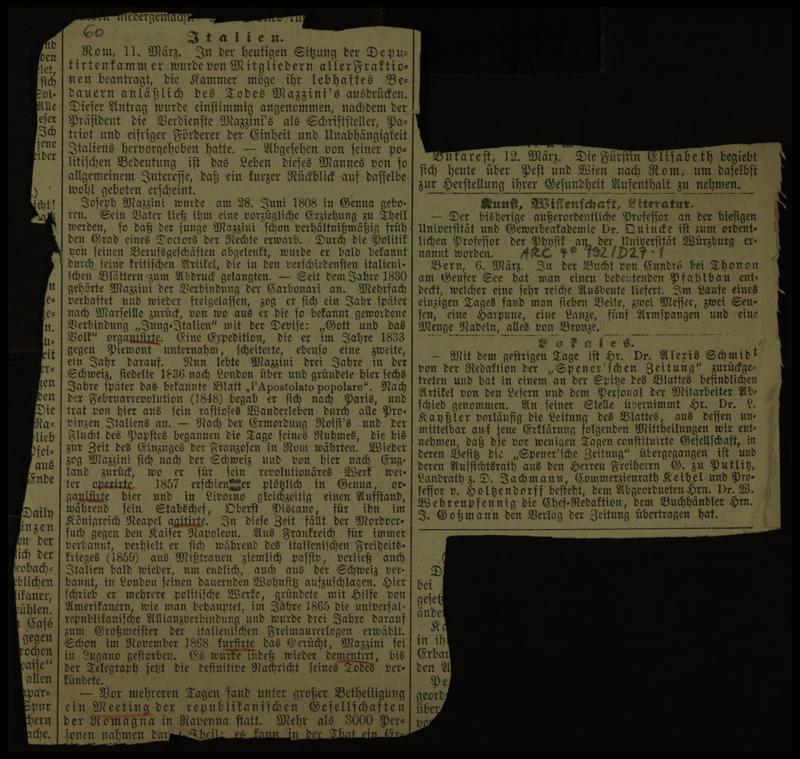 60
Italien.
Rom, 11. März. In der heutigen Sitzung der Depu-
tirtenkammer wurde von Mitgliedern aller Fraktio-
nen beantragt, die Kammer möge ihr lebhaftes Be-
dauern anläßlich des Todes Mazzini's ausdrücken.
Dieser Antrag wurde einstimmig angenommen, nachdem der
Präsident die Verdienste Mazzini's als Schriftsteller, Pa-
triot und eifriger Förderer der Einheit und Unabhängigkeit
Italiens hervorgehoben hatte. — Abgesehen von seiner po-
litischen Bedeutung ist das Leben dieses Mannes von so
allgemeinem Interesse, daß ein kurzer Rückblick auf dasselbe
wohl geboten erscheint.
Joseph Mazzini wurde am 28. Juni 1808 in Genua gebo-
ren. Sein Vater ließ ihm eine vorzügliche Erziehung zu Theil
werden, so daß der junge Mazzini schon verhältnißmäßig früh
den Grad eines Doctors der Rechte erwarb. Durch die Politik
von seinen Berufsgeschäften abgelenkt, wurde er bald bekannt
durch seine kritischen Artikel, die in den verschiedensten italieni-
schen Blättern zum Abdruck gelangten. — Seit dem Jahre 1830
gehörte Mazzini der Verbindung der Carbonari an. Mehrfach
verhaftet und wieder freigelassen, zog er sich ein Jahr später
nach Marseille zurück, von wo aus er die so bekannt gewordene
Verbindung „Jung-Italien" mit der Devise: „Gott und das
Volk" organisirte. Eine Expedition, die er im Jahre 1833
gegen Piemont unternahm, scheiterte, ebenso eine zweite,
ein Jahr darauf. Nun lebte Mazzini drei Jahre in der
Schweiz, siedelte 1836 nach London über und gründete hier sechs
Jahre später das bekannte Blatt „l'Apostolato popolare". Nach
der Februarrevolution (1848) begab er sich nach Paris, und
trat von hier aus sein rastloses Wanderleben durch alle Pro-
vinzen Italiens an. — Nach der Ermordung Rossi's und der
Flucht des Papstes begannen die Tage seines Ruhmes, die bis
zur Zeit des Einzuges der Franzosen in Rom währten. Wieder
zog Mazzini sich nach der Schweiz und von hier nach Eng-
land zurück, wo er für sein revolutionäres Werk wei-
ter operirte. 1857 erschien er plötzlich in Genua, or-
ganisirte hier und in Livorno gleichzeitig einen Aufstand,
während sein Stabschef, Oberst Piscane, für ihn im
Königreich Neapel agitirte. In diese Zeit fällt der Mordver-
such gegen den Kaiser Napoleon. Aus Frankreich für immer
verbannt, verhielt er sich während des italienischen Freiheits-
krieges (1859) aus Mißtrauen ziemlich passiv, verließ auch
Italien bald wieder, um endlich, auch aus der Schweiz ver-
bannt, in London seinen dauernden Wohnsitz aufzuschlagen. Hier
schrieb er mehrere politische Werke, gründete mit Hilfe von
Amerikanern, wie man behauptet, im Jahre 1865 die universal-
republikanische Allianzverbindung und wurde drei Jahre darauf
zum Großmeister der italienischen Freimaurerlogen erwählt.
Schon im November 1868 kursirte das Gerücht, Mazzini sei
in Lugano gestorben. Es wurde indeß wieder dementirt, bis
der Telegraph jetzt die definitive Nachricht seines Todes ver-
kündete.
— Vor mehreren Tagen fand unter großer Betheiligung
ein Meeting der republikanischen Gesellschaften
der Romagna in Ravenna statt. Mehr als 3000 Per-
sonen nahmen daran Theil; es kann in der That ein Er-
Bukarest, 12. März. Die Fürstin Elisabeth begiebt
sich heute über Pest und Wien nach Rom, um daselbst
zur Herstellung ihrer Gesundheit Aufenthalt zu nehmen.
Kunst, Wissenschaft, Literatur.
— Der bisherige außerordentliche Professor an der hiesigen
Universität und Gewerbeakademie Dr. Quincke ist zum ordent-
lichen Professor der Physik an der Universität Würzburg er-
nannt worden.
ARC 4° 792/D27-1
Bern, 6. März. In der Bucht von Cundré bei Thonon
am Genfer See hat man einen bedeutenden Pfahlbau ent-
deckt, welcher eine sehr reiche Ausbeute liefert. Im Laufe eines
einzigen Tages fand man sieben Beile, zwei Messer, zwei Sen-
sen, eine Harpune, eine Lanze, fünf Armspangen und eine
Menge Nadeln, alles von Bronze.
Lokales.
— Mit dem gestrigen Tage ist Hr. Dr. Alexis Schmidt
von der Redaction der „Spener'schen Zeitung" zurückge-
treten und hat in einem an der Spitze des Blattes befindlichen
Artikel von den Lesern und dem Personal der Mitarbeiter Ab-
schied genommen. An seiner Stelle übernimmt Hr. Dr. L.
Kayßler vorläufig die Leitung des Blattes, aus dessen un-
mittelbar auf jene Erklärung folgenden Mittheilungen wir ent-
nehmen, daß die vor wenigen Tagen constituirte Gesellschaft, in
deren Besitz die „Spener'sche Zeitung" übergegangen ist und
deren Aufsichtsrath aus den Herren Freiherrn G. zu Putlitz,
Landrath z. D. Jachmann, Commerzienrath Keibel und Pro-
fessor v. Holtzendorff besteht, dem Abgeordneten Hrn. Dr. W.
Wehrenpfennig die Chef-Redaktion, dem Buchhändler Hrn.
J. Goßmann den Verlag der Zeitung übertragen hat.